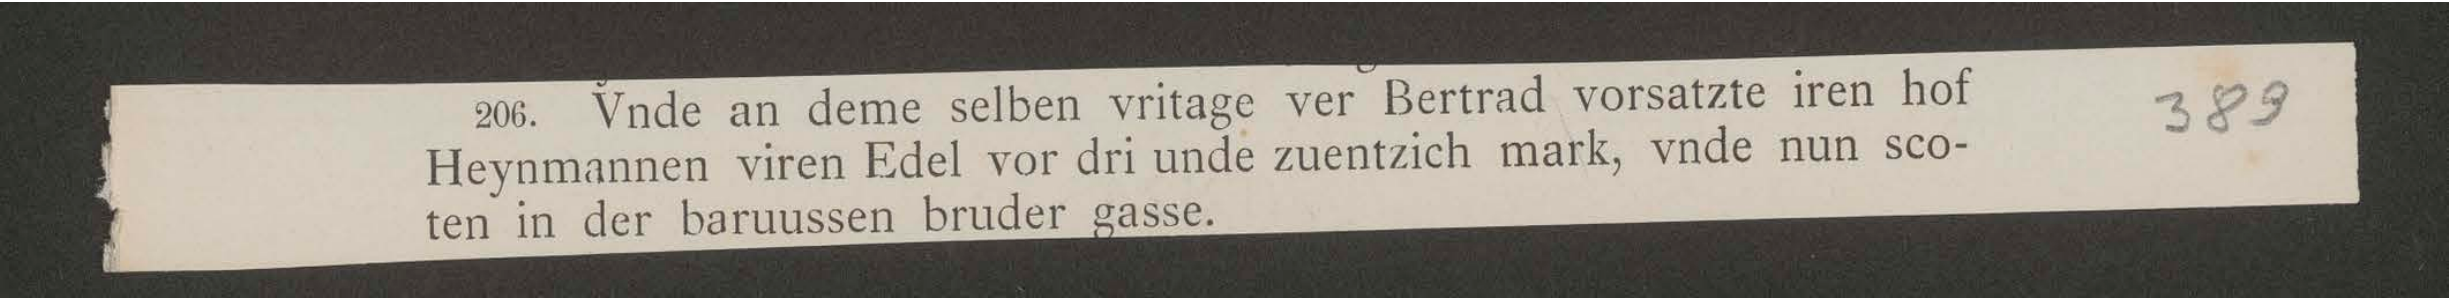 206. V̆nde an deme selben vritage ver Bertrad vorsatzte iren hof 389
Heynmannen viren Edel vor dri unde zuentzich mark, vnde nun sco-
ten in der baruussen bruder gasse.